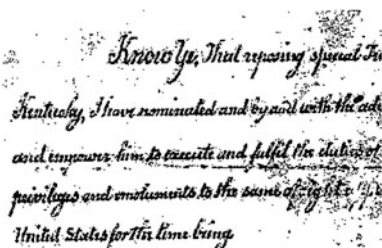 Know Ye, That reposing special
Kentucky, I have nominated and by and with the
and empower him to execute and fulfil the duties of
privileges and emoluments to the same of right
United States for the time being